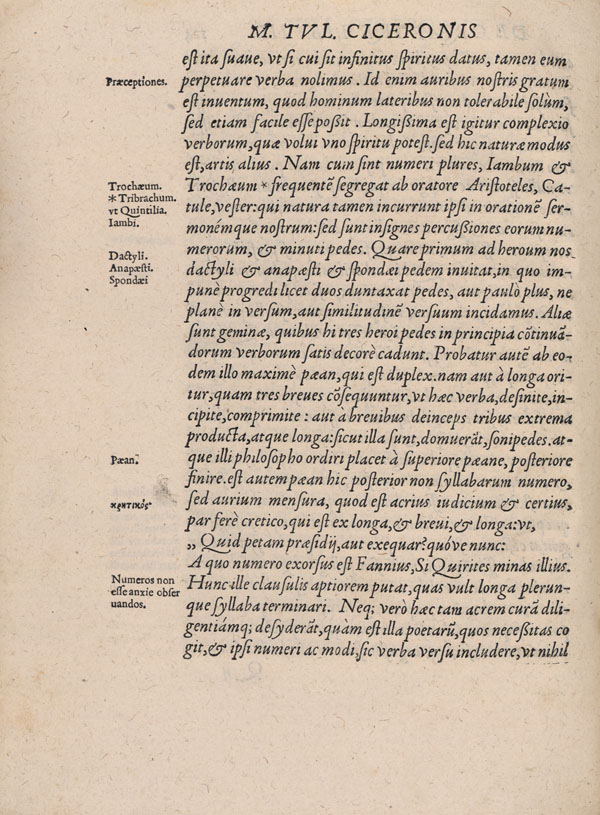 M. TVL. CICERONIS
est ita suaue, vt si cui sit infinitus spiritus datus, tamen eum
Præceptiones.
perpetuare verba nolimus. Id enim auribus nostris gratum
est inuentum, quod hominum lateribus non tolerabile solùm,
sed etiam facile esse possit. Longissima est igitur complexio
verborum, quæ volui vno spiritu potest. sed hic naturæ modus
est, artis alius. Nam cum sint numeri plures, Iambum &
Trochæum.
Trochæum * frequentẽ segregat ab oratore Aristoteles, Ca-
* Tribrachum.
tule, vester: qui natura tamen incurrunt ipsi in orationẽ ser-
vt Quintilia.
monémque nostrum: sed sunt insignes percussiones eorum nu-
Iambi.
merorum, & minuti pedes. Quare primum ad heroum nos
Dactyli.
dactyli & anapæsti & spondæi pedem inuitat, in quo im-
Anapæsti.
punè progredi licet duos duntaxat pedes, aut paulò plus, ne
Spondæi
planè in versum, aut similitudinẽ versuum incidamus. Aliæ
sunt geminæ, quibus hi tres heroi pedes in principia cõtinuã-
dorum verborum satis decorè cadunt. Probatur autẽ ab eo-
dem illo maximè pæan, qui est duplex. nam aut à longa ori-
tur, quam tres breues cõsequuntur, vt hæc verba, desinite, in-
cipite, comprimite: aut à breuibus deinceps tribus extrema
producta, atque longa: sicut illa sunt, domuerãt, sonipedes. at-
Pæan.
que illi philosopho ordiri placet à superiore pæane, posteriore
finire. est autem pæan hic posterior non syllabarum numero,
κρητικός
sed aurium mensura, quod est acrius iudicium & certius,
par ferè cretico, qui est ex longa, & breui, & longa: vt,
„ Quid petam præsidij, aut exequar? quóve nunc:
A quo numero exorsus est Fannius, Si Quirites minas illius.
Numeros non
Hunc ille clausulis aptiorem putat, quas vult longa plerun-
esse anxie obser
que syllaba terminari. Neq; verò hæc tam acrem curã dili-
uandos.
gentiámq; desyderãt, quàm est illa poetarũ, quos necessitas co
git, & ipsi numeri ac modi, sic verba versu includere, vt nihil